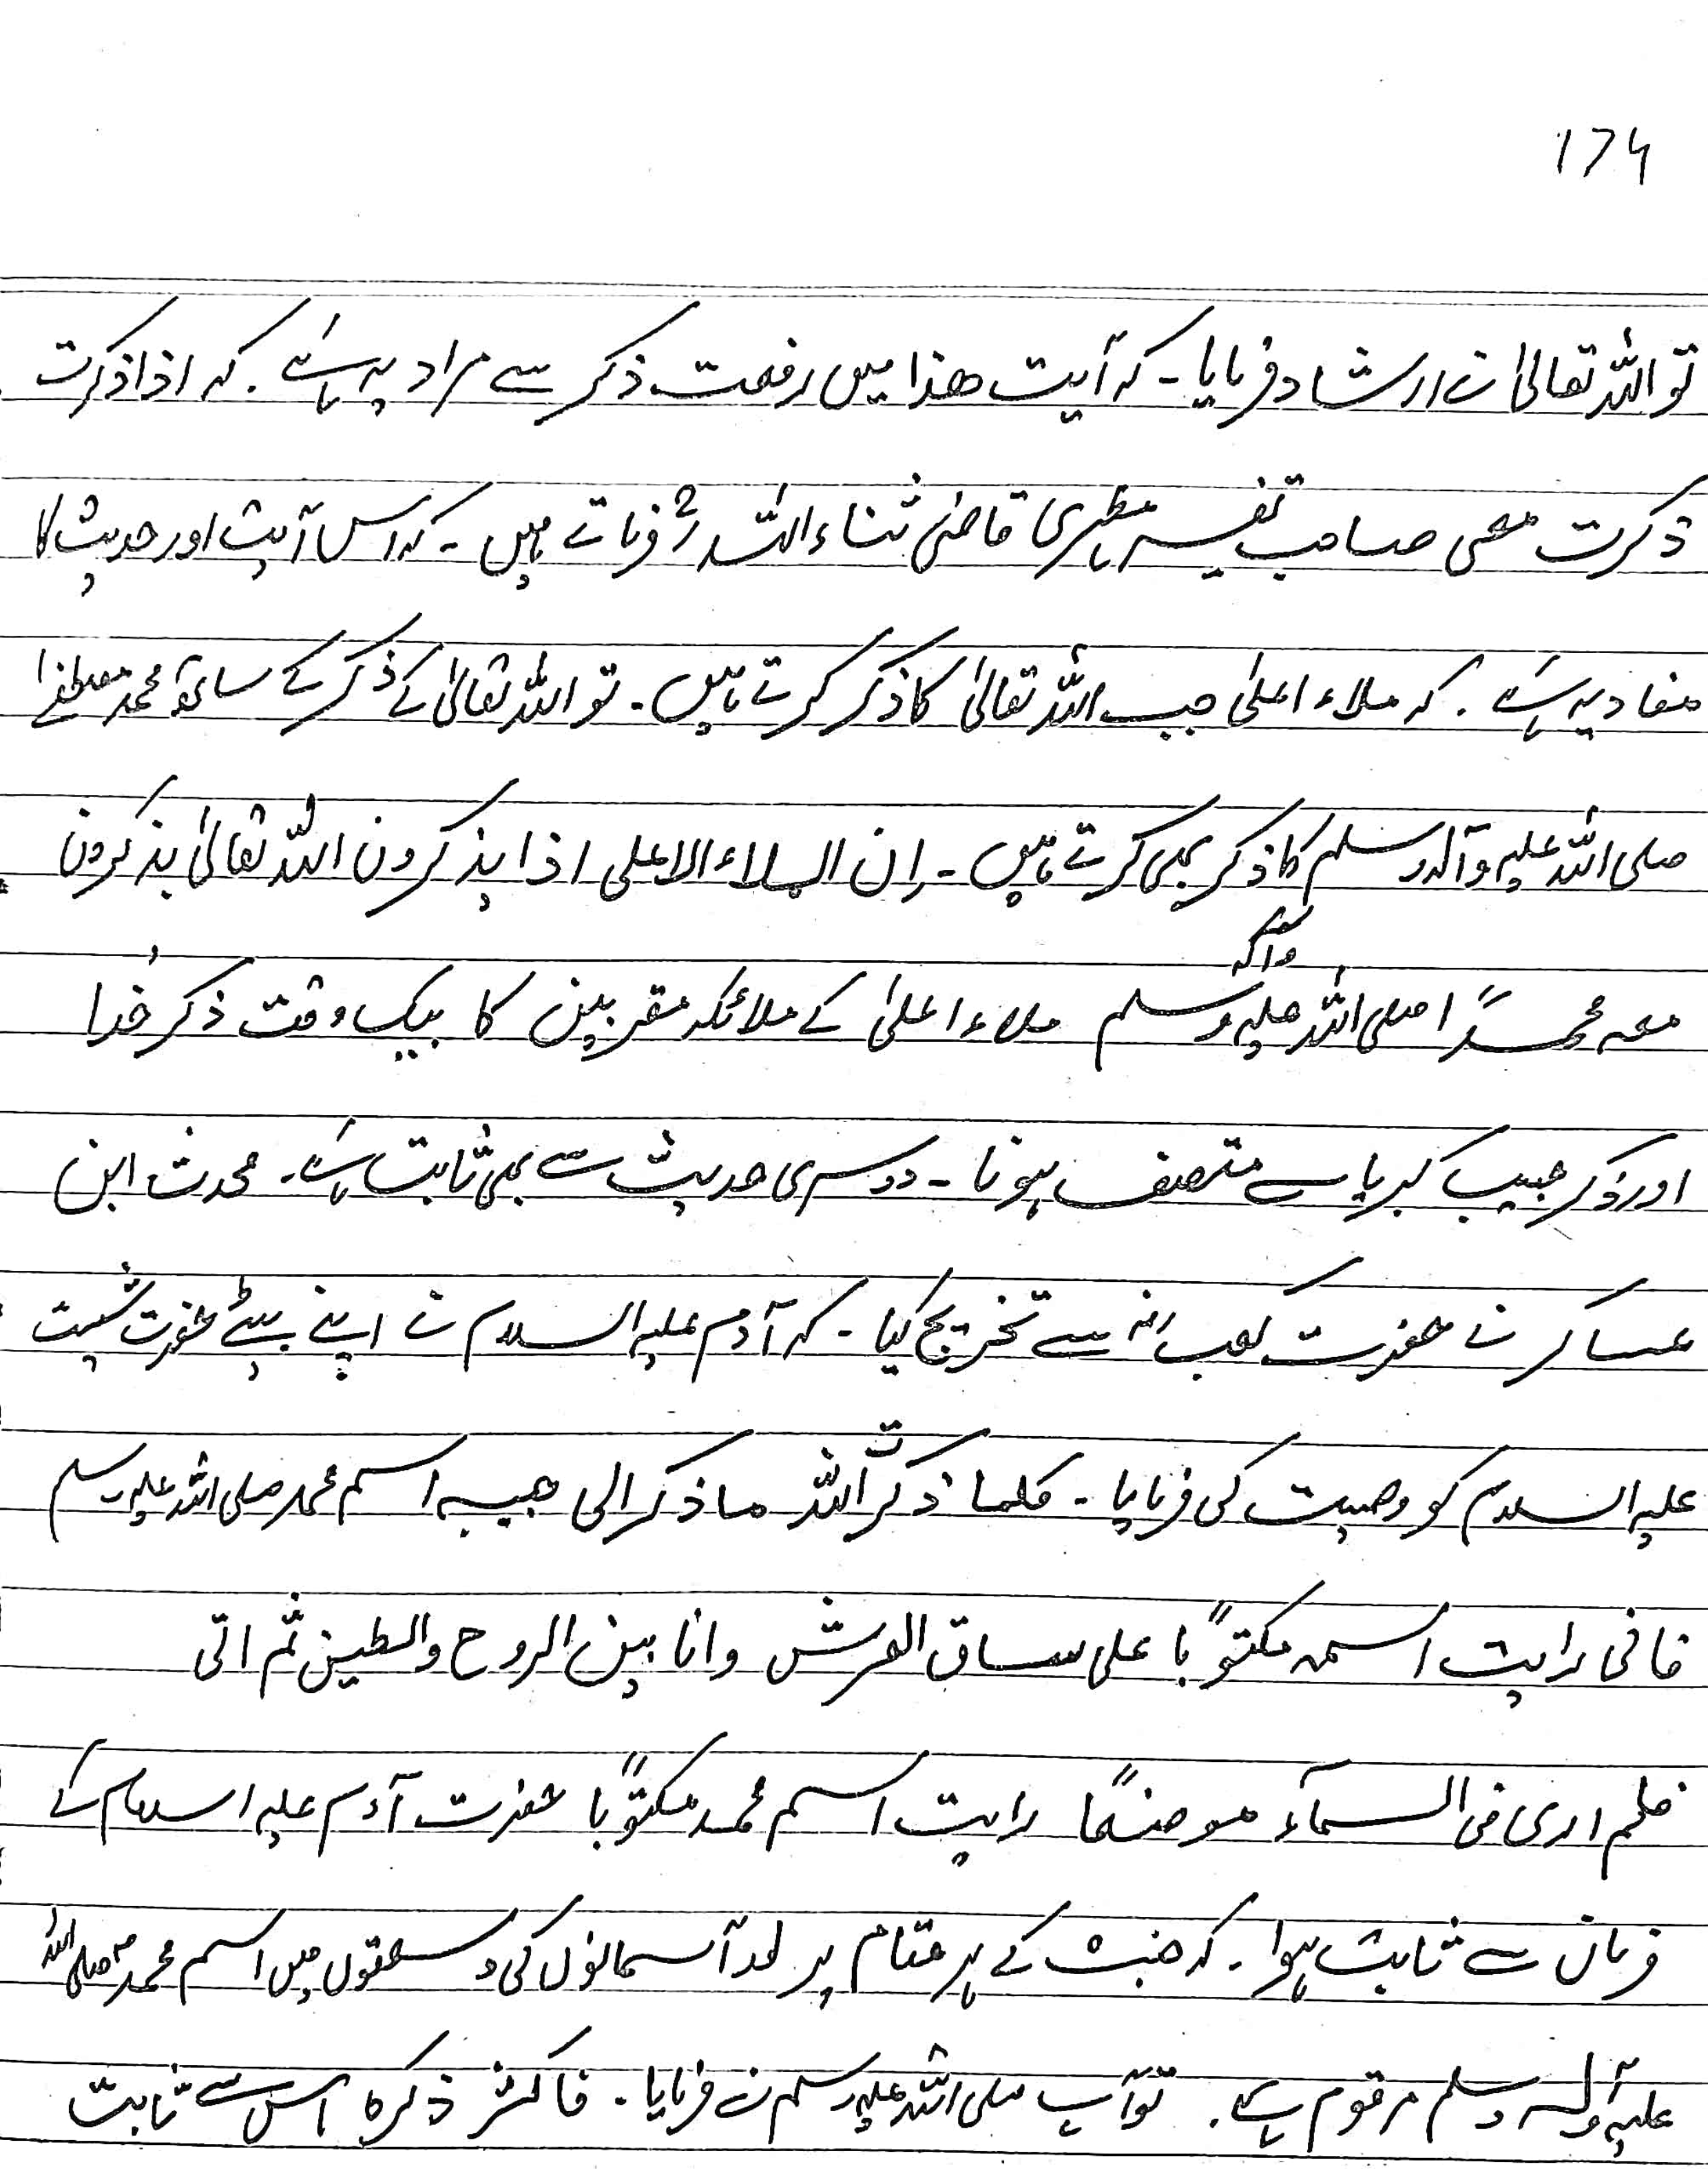 174
تو اللہ تعالیٰ نے ارشاد فرمایا۔ کہ آیت ھذا میں رفعت ذکر سے مراد یہ ہے۔ کہ اذا ذکرت
ذکرت معی صاحب تفسیر مظہری قاضی ثناء اللہ رح فرماتے ہیں۔ کہ اس آیت اور حدیث کا
مفاد یہ ہے۔ کہ ملاء اعلیٰ جب اللہ تعالیٰ کا ذکر کرتے ہیں۔ تو اللہ تعالیٰ کے ذکر کے ساتھ محمد مصطفےٰ
صلی اللہ علیہ وآلہ وسلم کا ذکر بھی کرتے ہیں۔ ان الملاء الاعلی اذا یذکرون اللہ تعالیٰ یذکرون
معہ محمداً صلی اللہ علیہ وآلہ وسلم ملاء اعلیٰ کے ملائکہ مقربین کا بیک وقت ذکر خُدا
اور ذکر حبیب کبریا سے متصف ہونا۔ دوسری حدیث سے بھی ثابت ہے۔ محدث ابن
عساکر نے حضرت کعب رضہ سے تخریج کیا۔ کہ آدم علیہ السلام نے اپنے بیٹے حضرت شیث
علیہ السلام کو وصیت کی فرمایا۔ فکلما ذکرت اللہ ماذکر الی جیبہ اسم محمد صلی اللہ علیہ وسلم
فانی رایت اسمہ مکتوباً علی ساق العرش وانا بین الروح والطین ثم انی
فلم اری فی السمآء موضعًا رایت اسم محمد مکتوباً حضرت آدم علیہ اسلام کے
فرمان سے ثابت ہوا۔ کہ جنت کے ہر مقام پر اور آسمانوں کی وسعتوں میں اسم محمد صلی اللہ
علیہ وآلہ وسلم مرقوم ہے۔ تو آپ صلی اللہ علیہ وسلم نے فرمایا۔ فاکثر ذکرہ اس سے ثابت